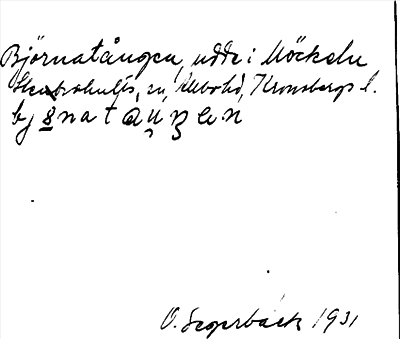 Björnatången, udde i Möckeln
Stenbrohults, sn, Allbo hd, Kronobergs l.
O. Segerbäck 1931